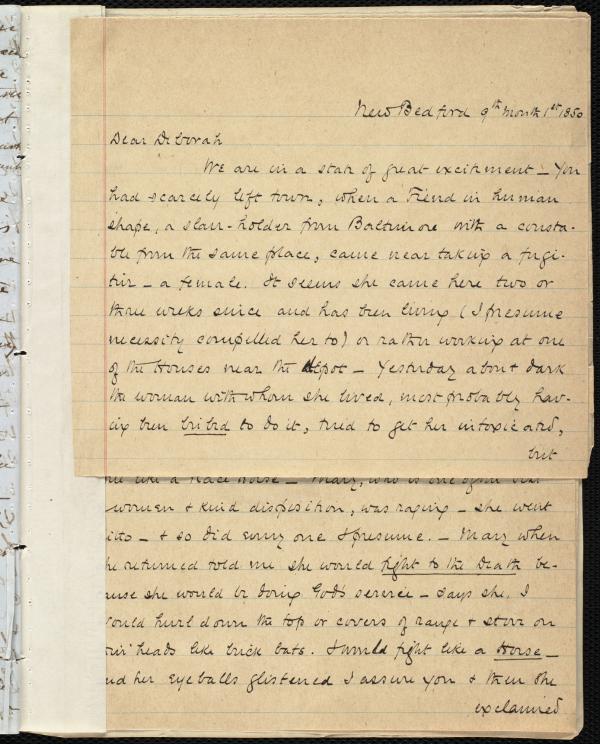 New Bedford 9th month 1st 1850
Dear Deborah
We are in a state of great excitement – You
had scarcely left town, when a Fiend in human
shape, a slave-holder from Baltimore with a consta-
ble from the same place, came near taking a fugi-
tive – a female. It seems she came here two or
three weeks since and has been living (I presume
necessity compelled her to) or rather working at one
of the Houses near the depot – Yesterday about dark
the woman with whom she lived, most probably hav-
ing been bribed to do it, tried to get her intoxicated,
but
like a Race Horse – Mary, who is one of
women & kind disposition, was raging – she went
 – & so did every one I presume. – Mary when
he returned told me she would fight to the Death be-
ause she would be doing God's service – says she, I
would hurl down the top or covers of range & stove on
their heads like brick bats. I would fight like a Horse –
nd her eyeballs glistened I assure you & then she
exclaimed